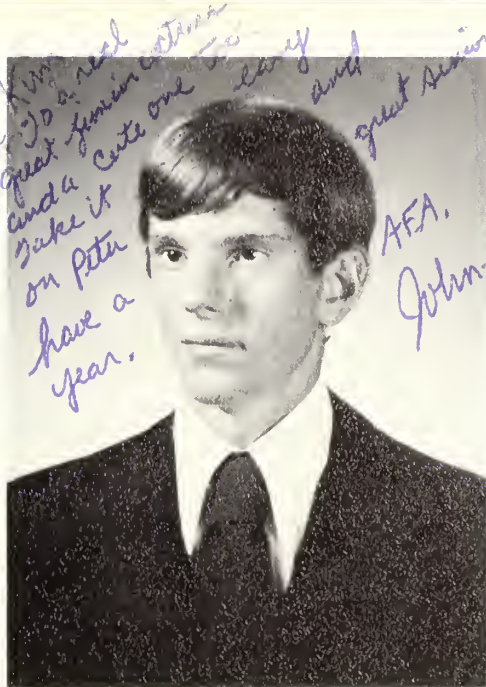 Kim
To a real
great junior
and a cute one too
Take it easy
on Peter and
have a great senior
year.
AFA,
John-